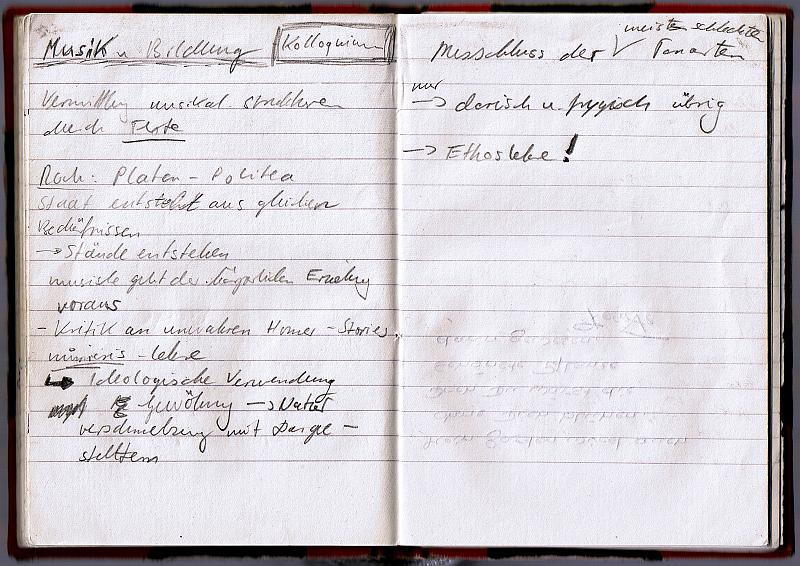 Musik u Bildung
Kolloquium
Vermittlung musikal. Strukturen
durch Flöte
Platon - Politea
Staat entsteht aus gleichen
Bedürfnissen
-> Stände entstehen
musische geht der körperlichen Erziehung
voraus
- Kritik an unwahren Homer - Stories.
mimesis - lehre
Ideologische Verwendung
Gewöhnung -> Natur
verschmelzung mit Darge -
stelltem
meisten schlechten
der Tonarten
nur
-> dorisch u. frygisch übrig
-> Ethoslehre!